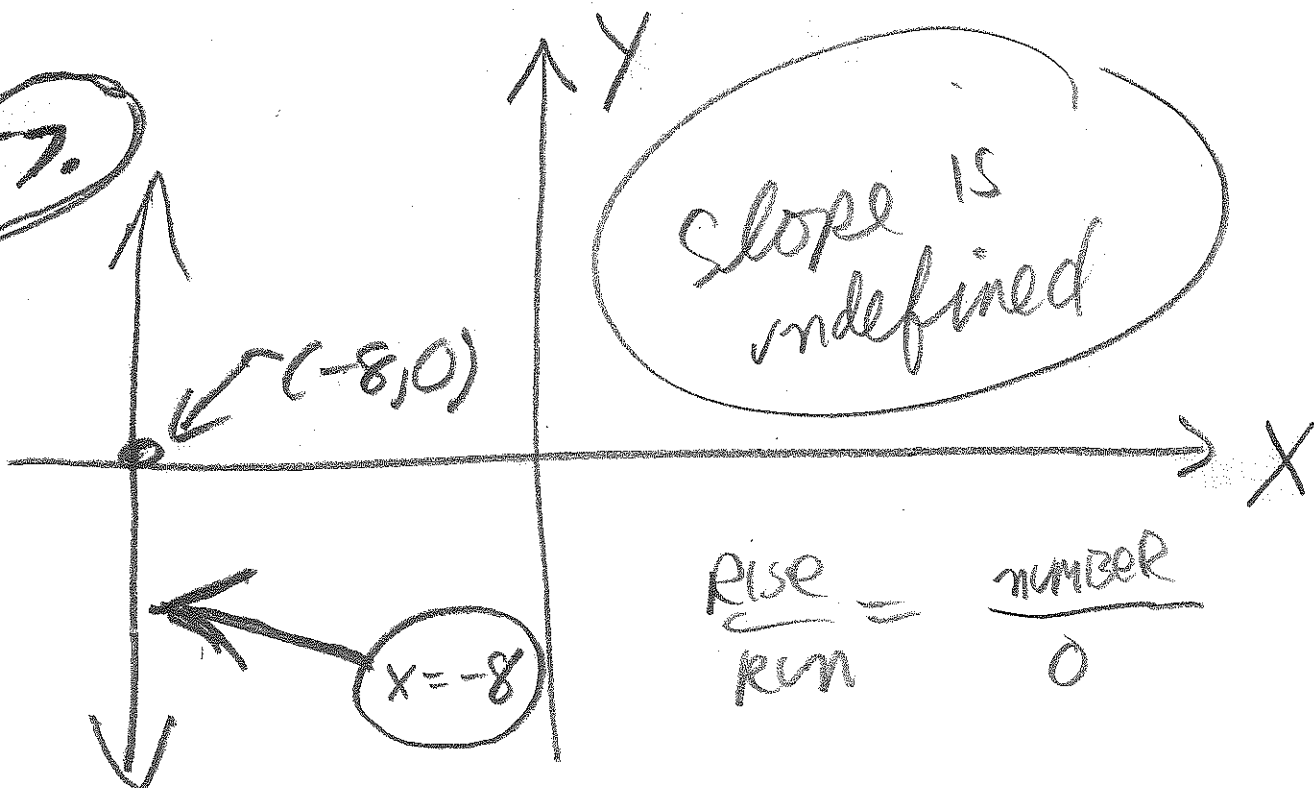 7.
Y
Slope is
undefined
(-8,0)
X
x = -8
RISE = NUMBER
RUN 0